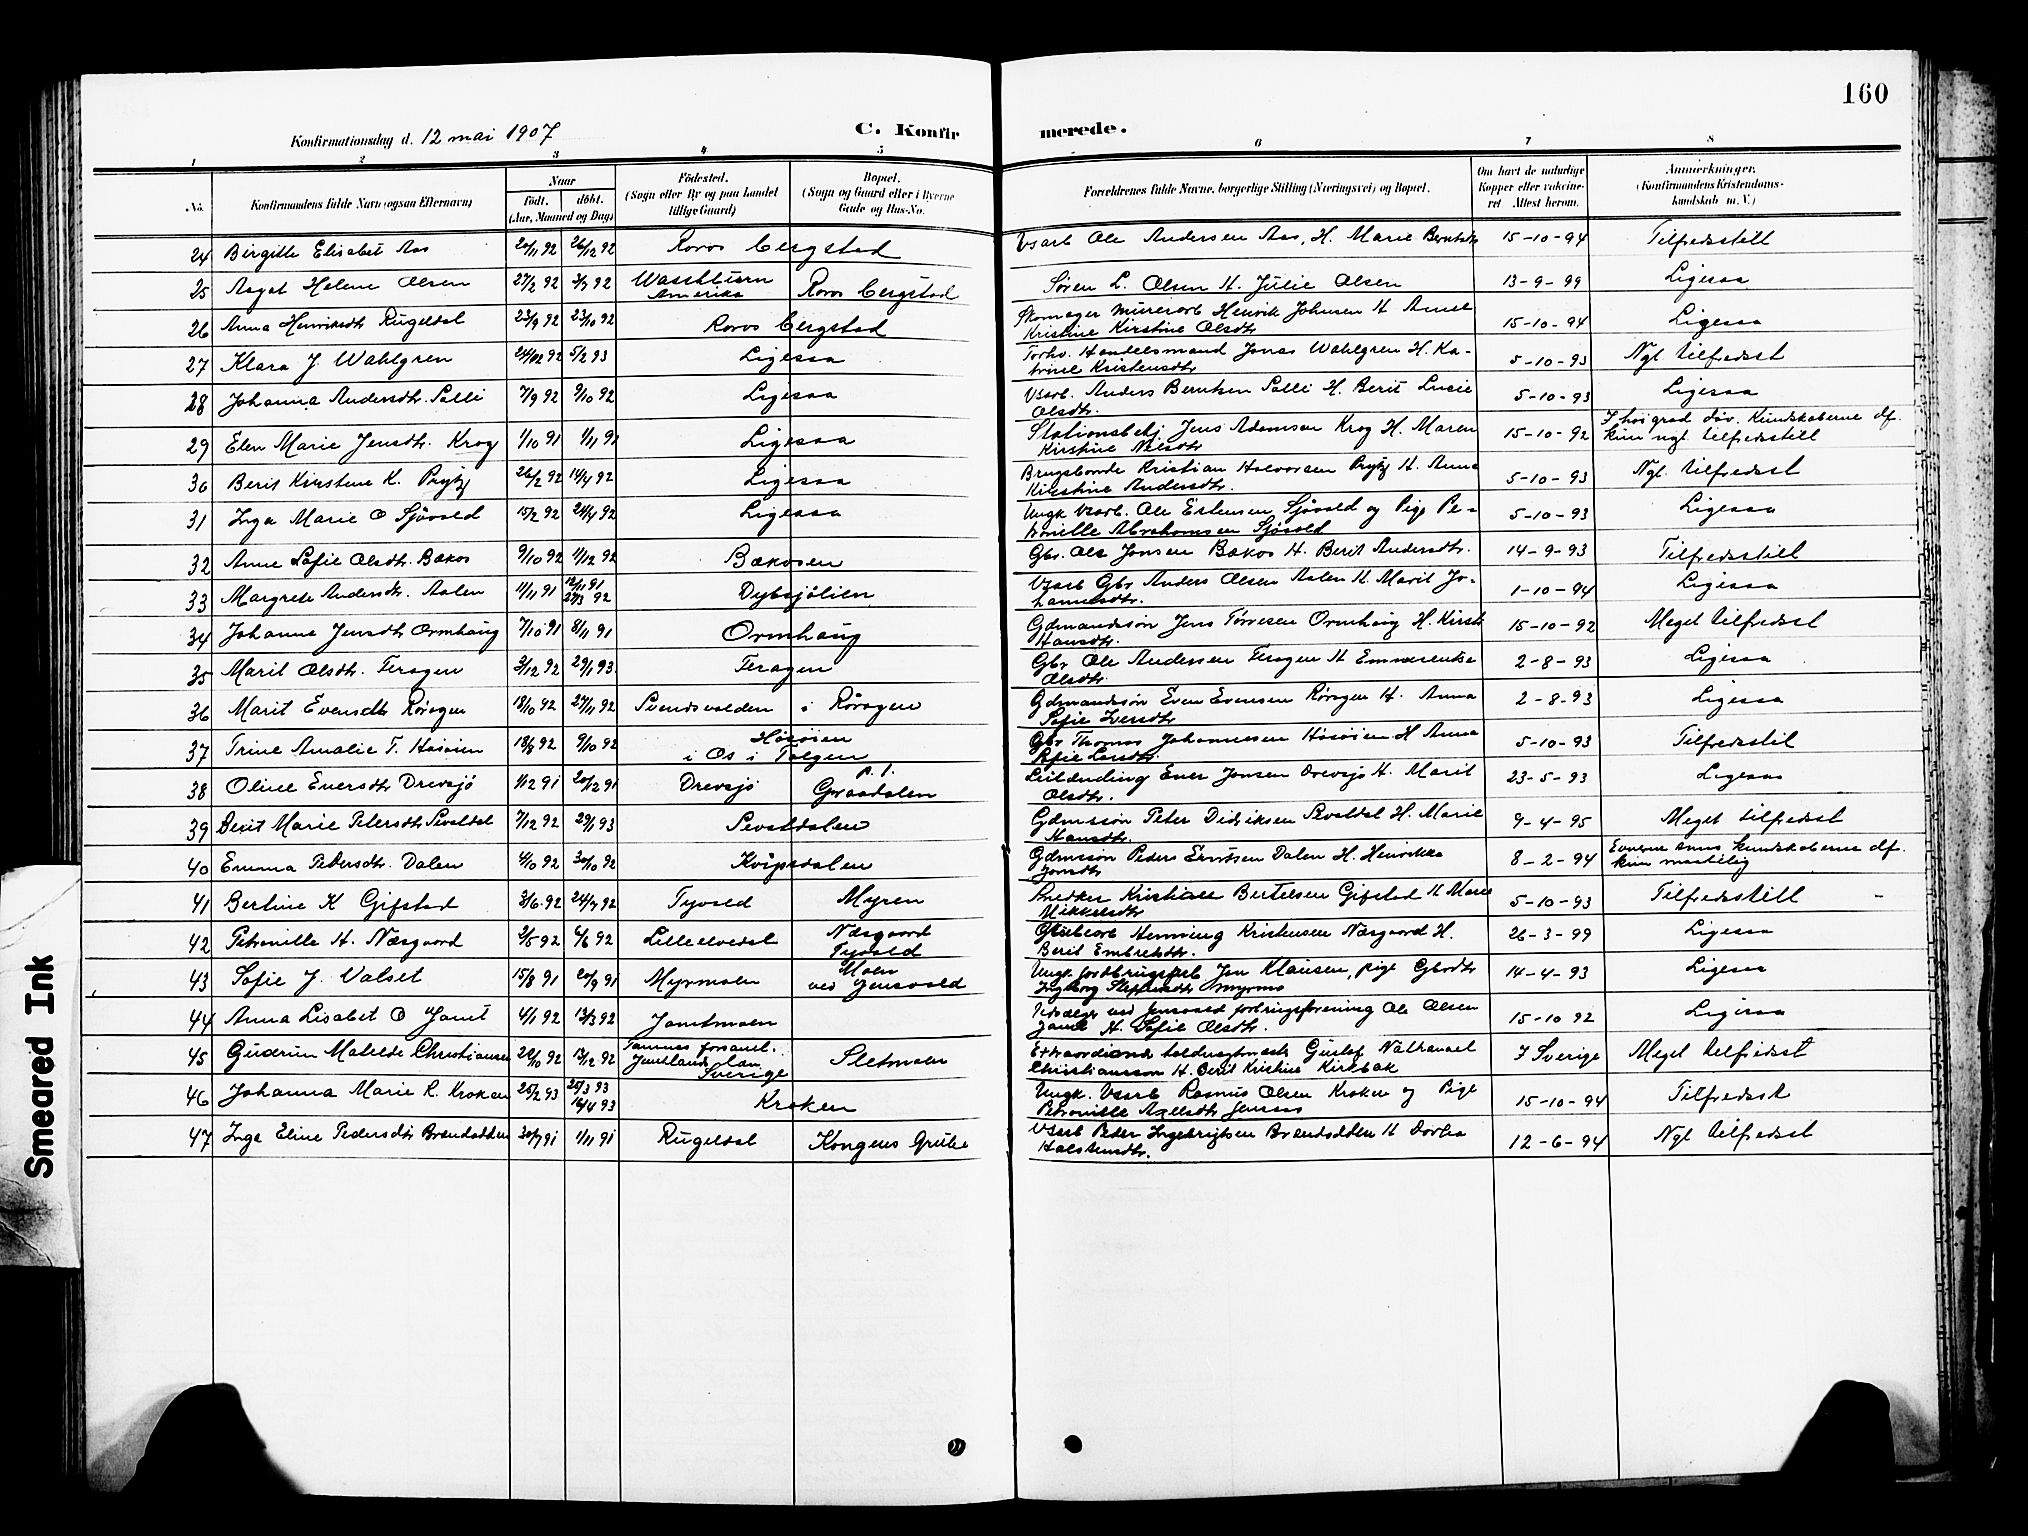 160
Konfirmationsdag d. 12 mai 1907
C. Konfir
merede.
1 2 3 4 5 6 7 8
No.
Konfirmandens fulde Navn (ogsaa Efternavn)
Naar
født. døbt.
(Aar, Maaned og Dag)
Fødested.
(Sogn eller By og paa Landet
tillige Gaard)
Bopæl.
(Sogn og Gaard eller i Byerne
Gade og Hus-No.
Forældrenes fulde Navne, borgerlige Stilling (Næringsvei) og Bopæl.
Om havt de naturlige
Kopper eller vakcine-
ret Attest herom.
Anmerkninger.
(Konfirmandens Kristendoms-
kundskab m. V.)
24 Birgitte Elisabet Aas 20/11 92 26/12 92 Roros Bergstad Vsarb Ole Andersen Aas, H. Marie Berntsdtr 15-10-94 Tilfredsstill
25 Aagot Helene Olsen 27/2 92 3/9 92 Washburn
Amerika Roros Bergstad Søren L. Olsen H. Julie Olsen 13-9-99 Ligesaa
26 Anna Henriksdtr Rugeldal 23/9 92 23/10 92 Roros Bergstad Skomager murerarb Henrik Johnsen H Anne
Kristine Kirstine Olsdtr 15-10-94 Ligesaa
27 Klara J. Wahlgren 5/2 93 Ligesaa Forhv. Handelsmand Jonas Wahlgren H. Ka-
trine Kristensdtr 5-10-93 Ngl tilfredsst
28 Johanna Andersdtr. Salli 7/9 92 9/10 92 Ligesaa Vsarb. Anders Berntsen Salli H. Berit Lucie
Olsdtr. 5-10-93 Ligesaa
29 Elen Marie Jensdtr. Krog 1/10 91 1/11 91 Ligesaa Stationsbetj. Jens Adamsen Krog H. Maren
Kirstine Nilsdtr 15-10-92 I høi grad døv. Kundskaberne df.
kun ngl tilfredsstill
30 Berit Kirstine K. Prytz 26/2 92 14/4 92 Ligesaa Brugsbonde Kristian Halvorsen Prytz H. Anna
Kirstine Andersdtr. 5-10-93 Ngl. tilfredsst
31 Inga Marie O Sjøvold 15/2 92 24/4 92 Ligesaa Ungk Vsarb. Ole Estensen Sjøvold og Pige Pe-
tronille Abrahamsen Sjøvold 5-10-93 Ligesaa
32 Anne Sofie Olsdtr. Bækos 9/10 92 1/12 92 Bækosen Gbr. Ole Jonsen Bækos H. Berit Andersdtr. 14-9-93 Tilfredsstill
33 Margrete Andersdtr. Aalen 11/11 91 12/11 91
27/3 92 Dybsjølien Vsarb Gbr Anders Olsen Aalen H. Marit Jo-
hannesdtr. 1-10-94 Ligesaa
34 Johanna Jensdtr Ormhaug 7/10 91 8/11 91 Ormhaug Gdmandssøn Jens Torresen Ormhaug H. Kirsti
Hansdtr. 15-10-92 Meget tilfredsst
35 Marit Olsdtr. Feragen 3/12 92 29/1 93 Feragen Gbr Ole Andersen Feragen H Emmerentse
Olsdtr. 2-8-93 Ligesaa
36 Marit Evensdtr Røragen 18/10 92 27/11 92 Svendsvolden i Røragen Gdmandssøn Even Evensen Røragen H. Anna
Sofie Iversdtr 2-8-93 Ligesaa
37 Trine Amalie T. Høsøien 18/8 92 9/10 92 Høsøien
i Os i Tolgen Gbr Thomas Johannessen Høsøien H Anna
Sofie Larsdtr. 5-10-93 Tilfredsstil
38 Oline Eversdtr Drevsjø 1/12 91 20/12 91 Drevsjø p. t.
Graadalen Leilending Ever Jonsen Drevsjø H. Marit
Olsdtr. 23-5-93 Ligesaa
39 Berit Marie Petersdtr Sevaldal 7/12 92 29/1 93 Sevaldalen Gdmssøn Peter Didriksen Sevaldal H. Marie
Hansdtr. 9-4-95 Meget tilfredsst
40 Emma Pedersdtr. Dalen 4/10 92 30/10 92 Kvipsdalen Gdmssøn Peder Erntsen Dalen H. Henrikka
Jonsdtr 8-2-94 Evnerne smaa kundskaberne df.
kun maatelig
41 Bertine K Gifstad 3/6 92 24/7 92 Tyvold Myren Snedker Kristian Bertelsen Gifstad H Marie
Mikkelsdtr 5-10-93 Tilfredsstill
42 Petronille H. Næsgaard 2/5 92 6/6 92 Lilleelvedal Næsgaard
Tyvold Grubearb Henning Kristensen Næsgaard H.
Berit Embretsdtr. 26-3-99 Ligesaa
43 Sofie J. Valset 15/8 91 20/9 91 Myrmoen Moen
ved Jensvold Ungk jordbrugsarb Jon Klausen, pige Gbrdtr
Ingeborg Steffensdtr Myrmo 14-4-93 Ligesaa
44 Anna Lisabet O Jamt 4/1 92 13/3 92 Jamtmoen Udsælger ved Jensvold forbrugsforening Ole Olsen
Jamt H. Sofie Olsdtr. 15-10 92 Ligesaa
45 Gudrun Matilde Christiansen 22/10 92 13/12 92 Tannäs forsaml.
Jemtlands Län
Sverige Sletmoen Extraordinær toldvagtmester Gustaf Nathanael
Christiansson H. Berit Kristine Kirkbak I Sverige Meget tilfredsst
46 Johanna Marie R. Kroken 25/2 93 25/3 93
16/4 93 Kroken Ungk. Vsarb Rasmus Olsen Kroken og Pige
Petronille Axelsdtr Jensaas 15-10-94 Tilfredsst
47 Inga Eline Pedersdtr Brendadden 30/7 91 1/11 91 Rugeldal Kongens Grube Vsarb Peder Ingebrigtsen Brendadden H Dortea
Halstensdtr. 12-6-94 Ngl tilfredsst
Smeared Ink